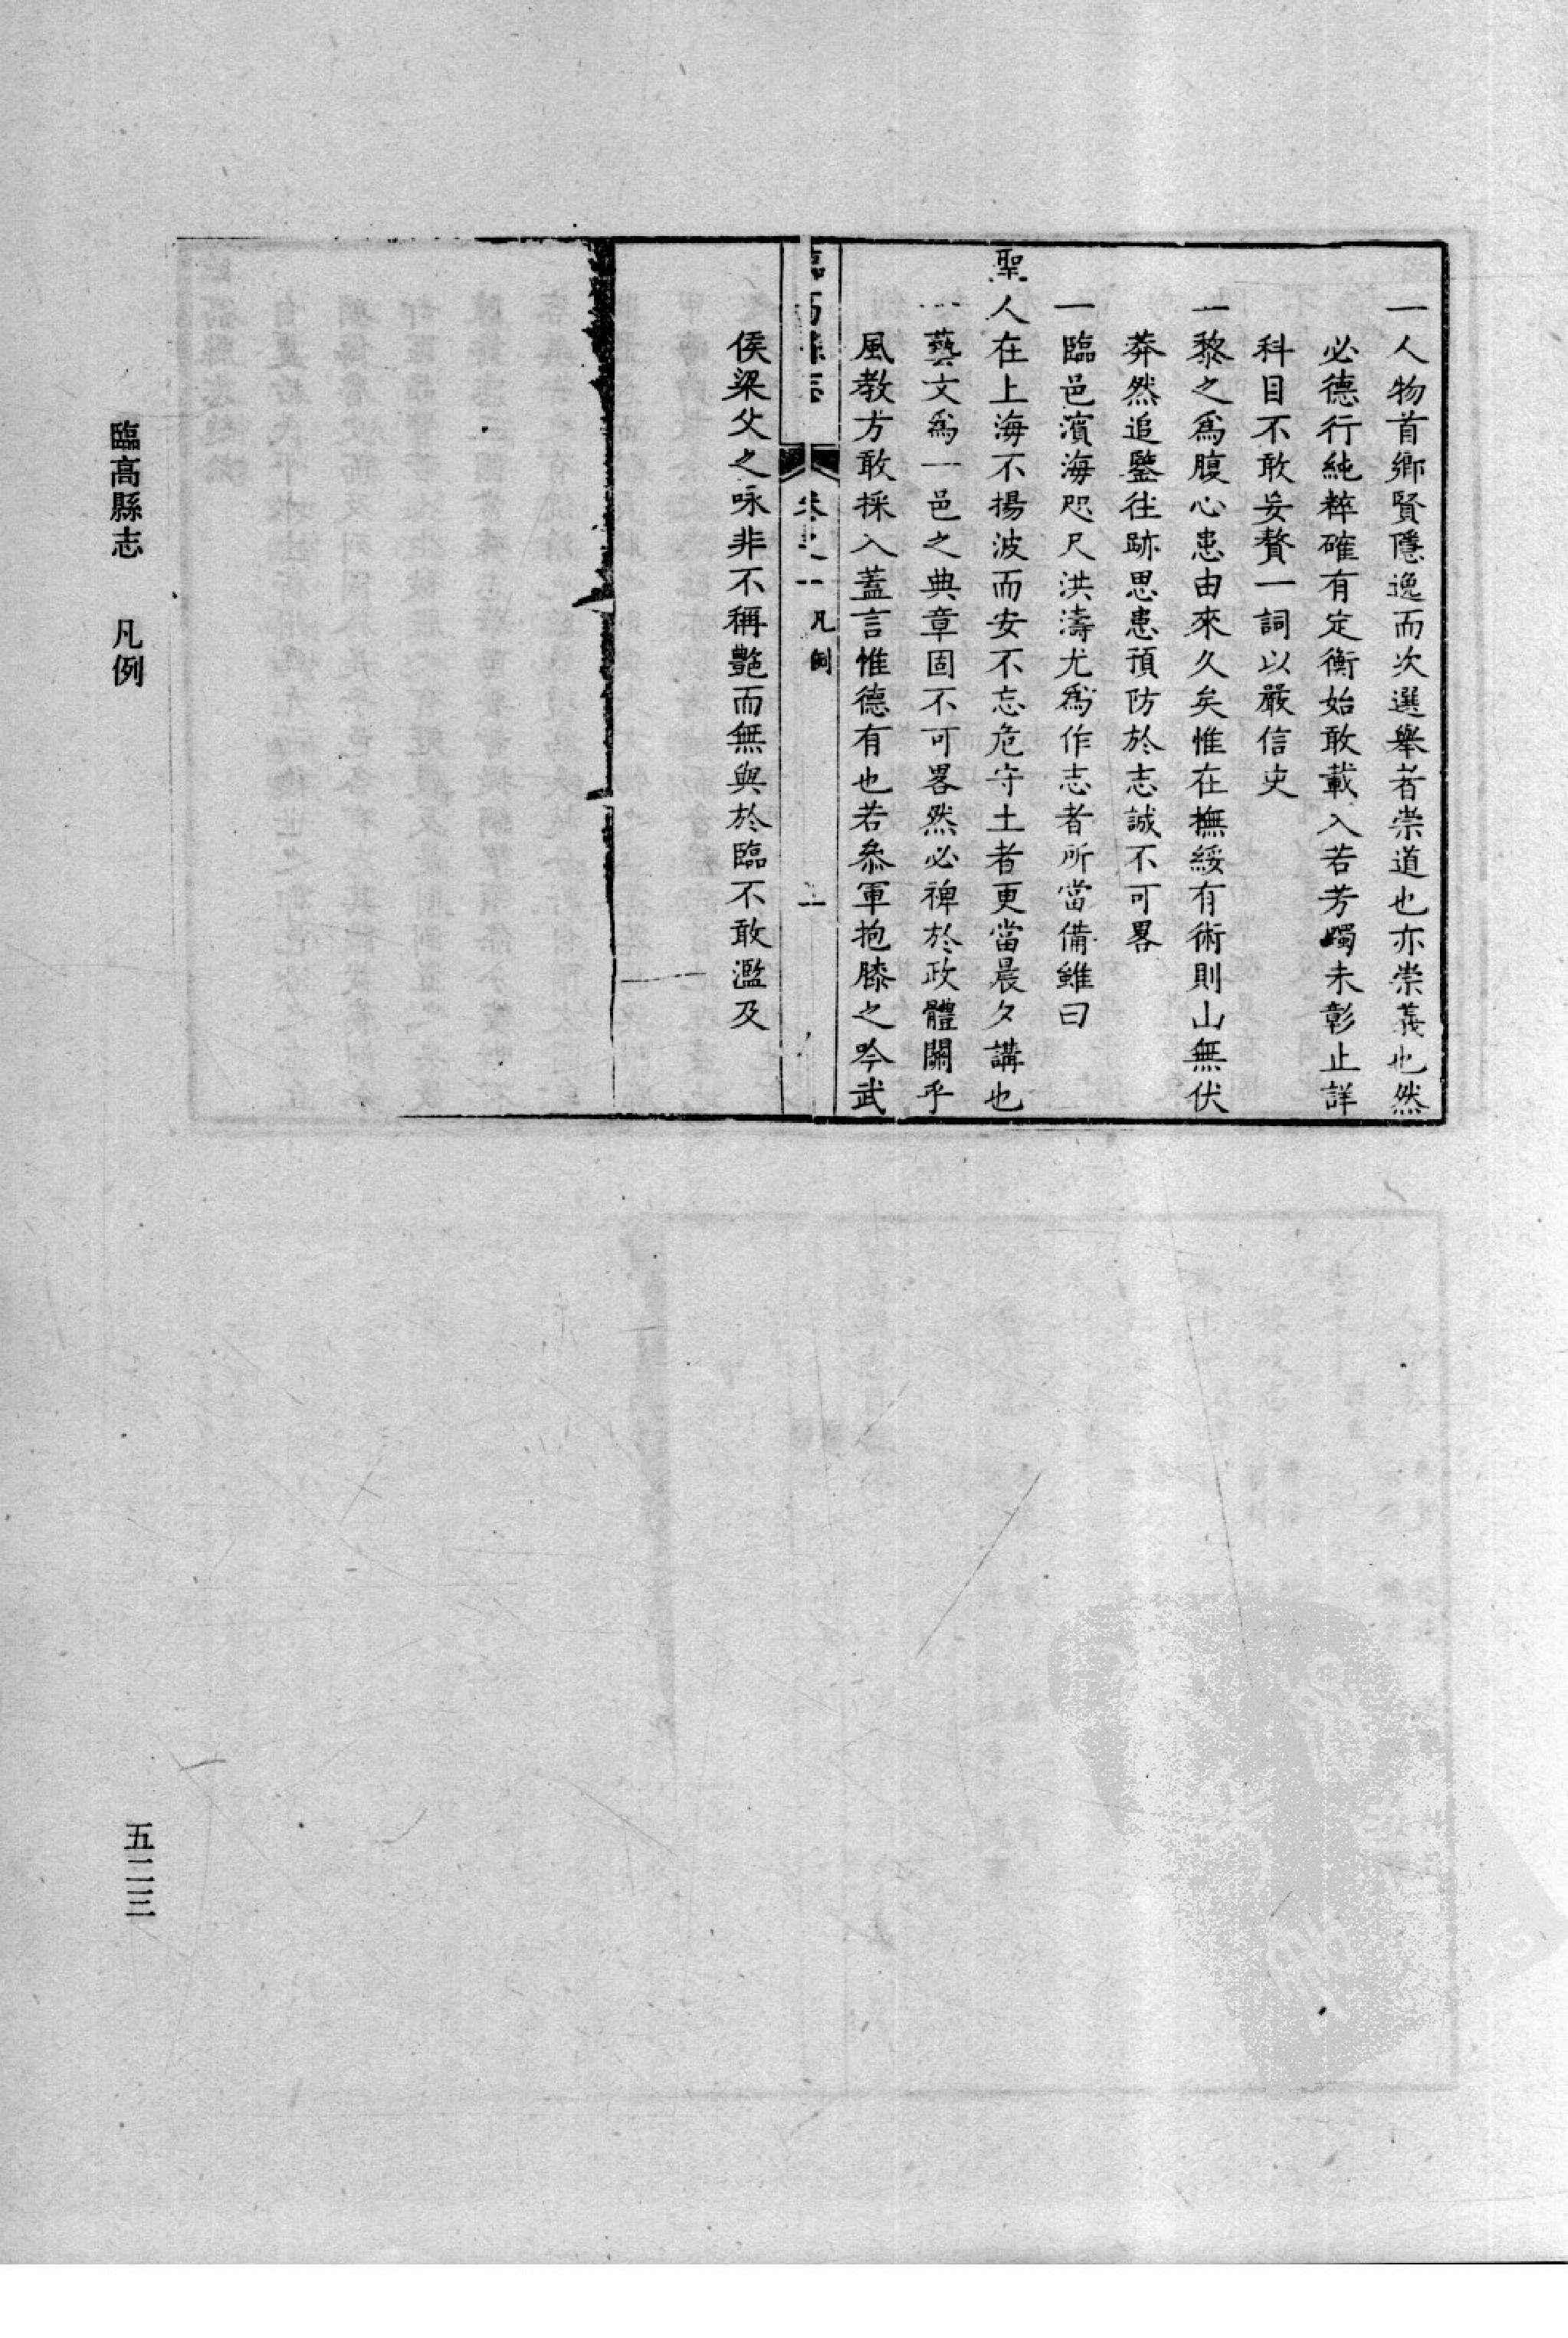 一人物首鄉賢隱逸而次選舉者崇道也亦崇義也然
必德行純粹確有定衡始敢載入若芳躅未彰止詳
科目不敢妄贅一詞以嚴信史
一黎之爲腹心患由來久矣惟在撫綏有術則山無伏
莽然追鑒往跡思患預防於志誠不可畧
一臨邑濱海咫尺洪濤尤爲作志者所當備雖曰
聖人在上海不揚波而安不忘危守土者更當晨夕講也
一藝文爲一邑之典章固不可畧然必裨於政體關乎
風教方敢採入蓋言惟德有也若叅軍抱膝之吟武
臨高縣志 卷之一 凡例
侯梁父之咏非不稱艷而無與於臨不敢濫及
臨高縣志 凡例
五二三